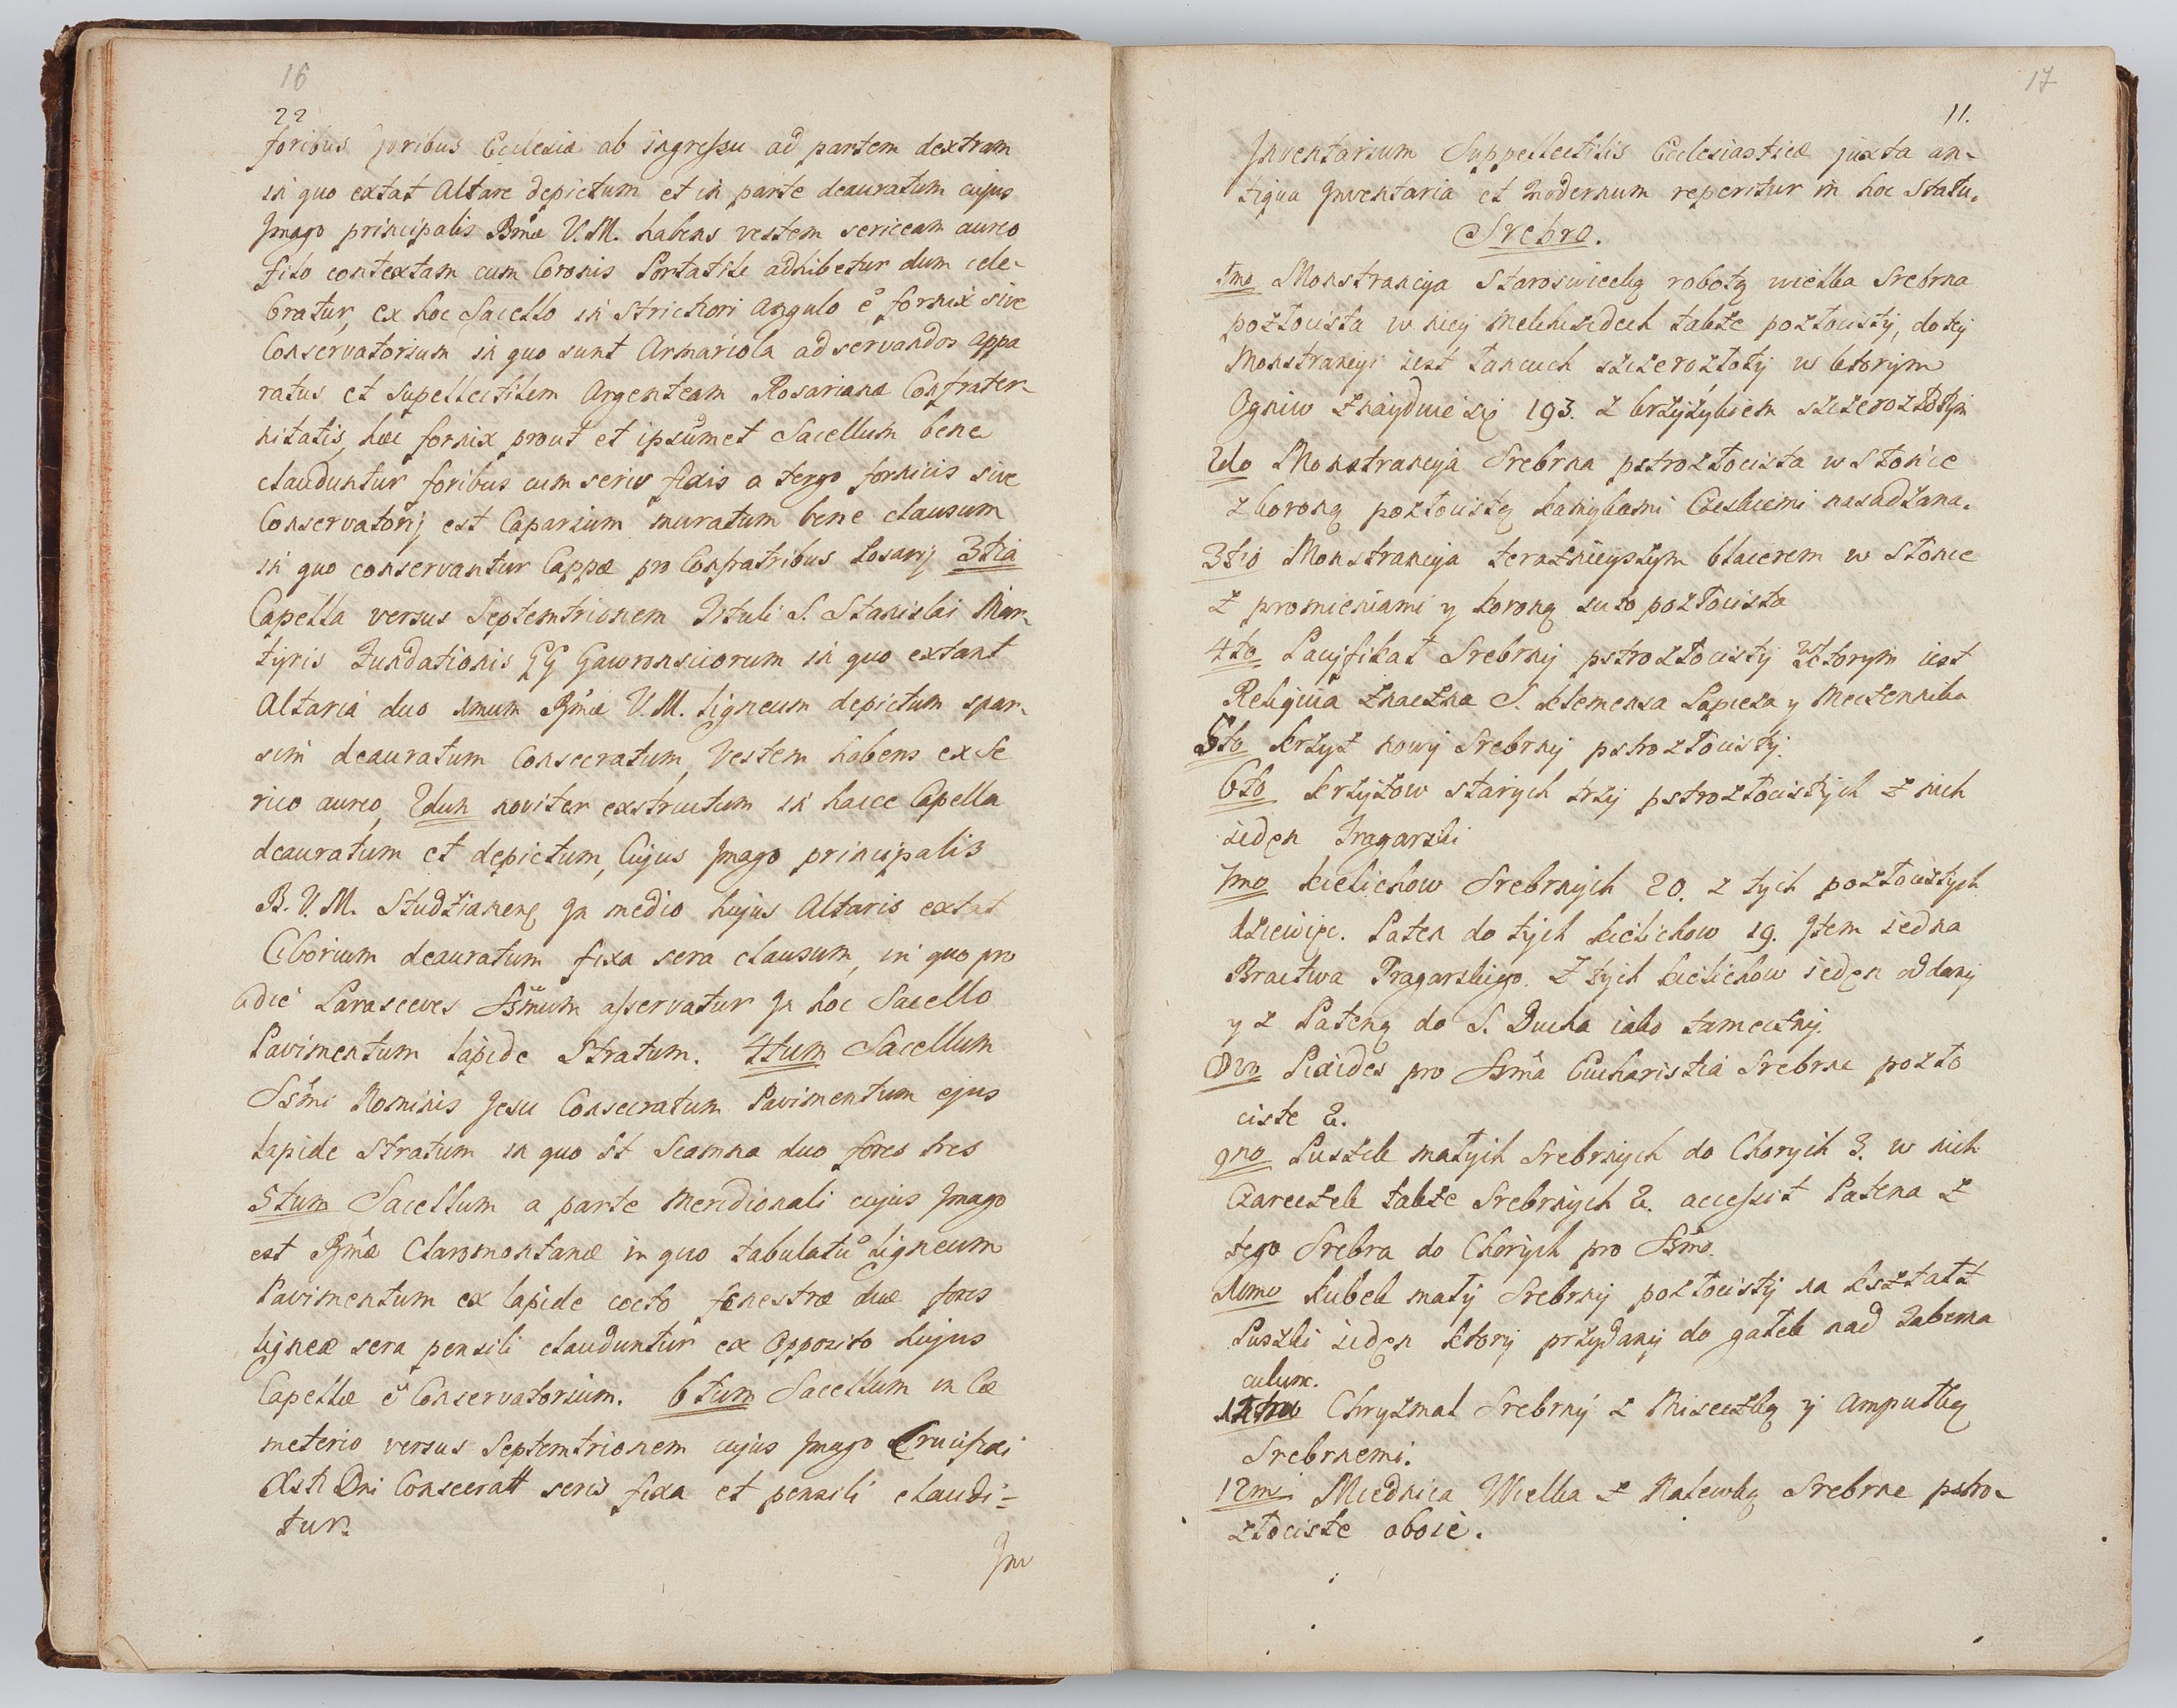 16
22
foribus foribus Ecclesiæ ab ingressu ad partem dextram
in quo extat Altare depictum et in parte deauratum cujus
Imago principalis Bmæ V.M. habens vestem sericeam aureo
filo contextam cum Coronis Portatile adhibetur dum cele-
bratur, ex hoc Sacello in strictiori angulo ẽ fornix sive
Conservatorium in quo sunt Armariola ad servandos appa
ratus et supellectilem Argenteam Rosarianæ Confrater-
nitatis, hæc fornix prout et ipsumet Sacellum bene
clauduntur foribus cum seris fixis a tergo fornicis sive
Conservatorij est Caparium muratum bene clausum
in quo conservantur Cappæ pro Confratribus Rosarij 3tia
Capella versus Septemtrionem Tituli S. Stanislai Mar-
tyris Fundationis GG Gawronsciorum in quo extant
Altaria duo 1mum Bmæ V.M. ligneum depictum spar-
sim deauratum Consecratum, Vestem habens ex Se
rico aureo, 2dun noviter exstructum in hacce Capella
deauratum et depictum, Cujus Imago principalis
B.V.M. Studzianenę In medio hujus Altaris extat
Ciborium deauratum fixa sera clausum, in quo pro
die Parasceves Ssmum asservatur In hoc Sacello
Pavimentum lapide Stratum. 4tum Sacellum
Ssmi Nominis Jesu Consecratum Pavimentum ejus
lapide Stratum in quo st Scamna duo fores tres
5tum Sacellum a parte Meridionali cujus Imago
est Bmæ Claromontanæ in quo tabulatũ ligneum
Pavimentum ex lapide cocto fenestræ duæ fores
ligneæ sera pensili clauduntur ex Opposito hujus
Capellæ ẽ Conservatorium. 6tum Sacellum in Cæ
meterio versus Septemtrionem cujus Imago Crucifixi
Xsti Dni Consecratt seris fixa et pensili claudi-
tur.
Inv
17
11.
Inventarium Suppellectilis Ecclesiasticæ juxta an-
tiqua Inventaria et Modernum reperitur in hoc Statu.
Srebro.
1mo Monstrancya Staroswiecką robotą wielka Srebrna
pozłocista w niey Melchisedech także pozłocisty, do tey
Monstrancyi iest łancuch szczerozłoty w ktorym
Ogniw znaydnie się 193. z krzyżykiem szczerozłotym
2do Monstrancya Srebrna pstrozłocista w Słońce
z koroną pozłocistą kamykami Czeskiemi nasadzana.
3tio Monstrancya teraznieyszym kształtem w Słońce
z promieniami y koroną suto pozłocista
4to Pacyfikał Srebrny pstrozłocisty w ktorym iest
Reliqiia znaczna S. Klemensa Papieża y Męczennika
5to krzyż nowy Srebrny pstrozłocisty.
6to krzyżow starych trzy pstrozłocistych z nich
ieden Tragarski
7mo kielichow Srebrnych 20. z tych pozłocistych
dziewięc. Paten do tych kielichow 19. Item iedna
Bractwa Tragarskiego. Z tych kielichow ieden oddany
y z Pateną do S. Ducha iako tameczny.
8vo Pixides pro Ssma Eucharistia Srebrne pozło
ciste 2.
9no Puszek małych Srebrnych do Chorych 3. w nich
Czareczek także Srebrnych 2. accessit Patena z
tego Srebra do Chorych pro Ssmo.
Xmo kubek mały Srebrny pozłocisty na kształt
Puszki ieden ktory przydany do gałek nad Taberna
culum.
Chryzmal Srebrny z Miseczką y Ampułką
Srebrnemi.
12mi Miednica Wielka z Nalewką Srebrne pstro-
złociste oboie.